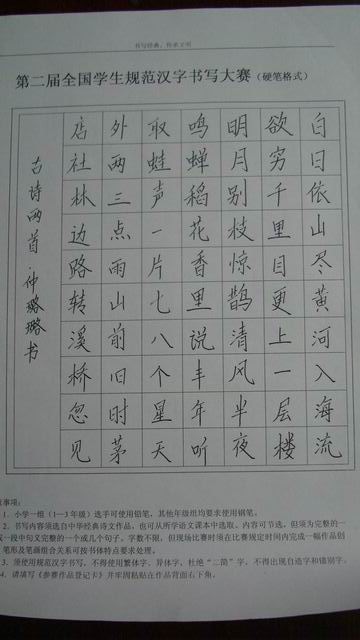 书写经典，传承文明
第二届全国学生规范汉字书写大赛（硬笔格式）
白日依山尽黄河入海流
欲穷千里目更上一层楼
明月别枝惊鹊清风半夜
鸣蝉稻花香里说丰年听
取蛙声一片七八个星天
外两三点雨山前旧时茅
店社林边路转溪桥忽见
古诗两首 仲璐璐书
事项：
1．小学一组（1—3 年级）选手可使用铅笔，其他年级组均要求使用钢笔。
2．书写内容须选自中华经典诗文作品，也可从所学语文课本中选取。内容可节选，但须为完整的一
或一段中句又完整的一个或几个句子。字数不限，但现场比赛时须在比赛规定时间内完成一幅作品创
笔形及笔画组合关系可按书体特点要求处理。
3．须使用规范汉字书写，不得使用繁体字、异体字、杜绝“二简”字，不得出现自造字和错别字。
4．请填写《参赛作品登记卡》并牢固粘贴在作品背面右下角。